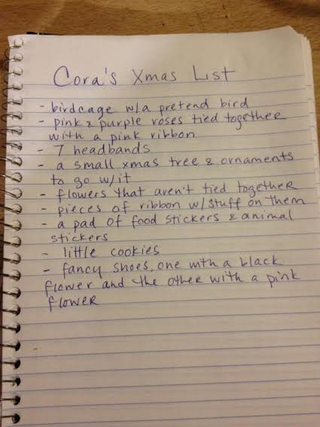 Cora's Xmas List
- birdcage w/a pretend bird
- pink & purple roses tied together
with a pink ribbon
- 7 headbands
- a small xmas tree & ornaments
to go w/it
- flowers that aren't tied together
- pieces of ribbon w/stuff on them
- a pad of food stickers & animal
stickers
- little cookies
- fancy shoes, one with a black
flower and the other with a pink
flower